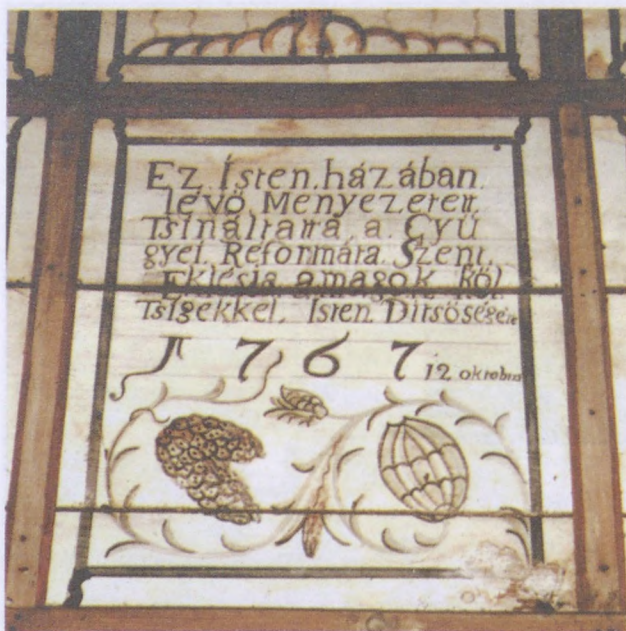 Ez Isten házában
lévö Menyezetett
Tsináltatta a Gyü
gyei Reformáta Szent
Eklésia amagok köl
Tsigekkel. Isten Ditsöségére
1767 12 oktobris